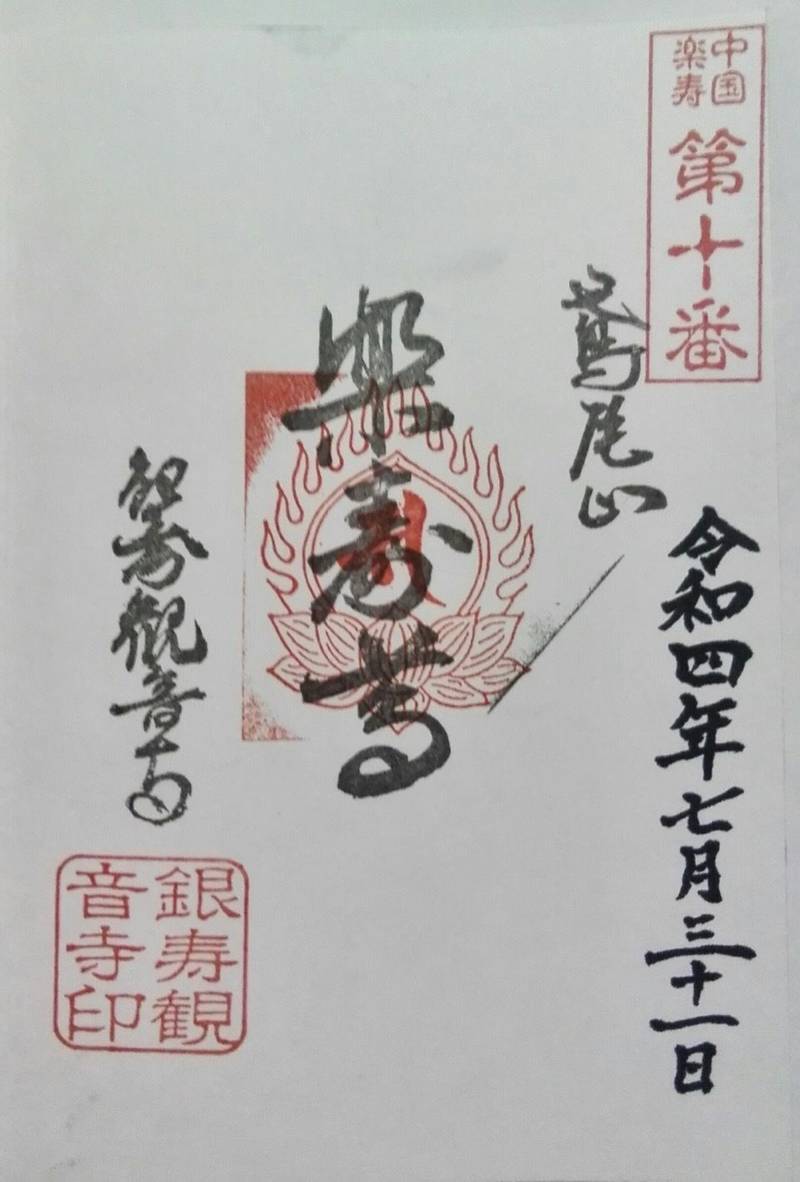 中国
楽寿
第十番
令和四年七月三十一日
鳶尾山
樂壽尊
銀寿觀音寺
銀寿観
音寺印